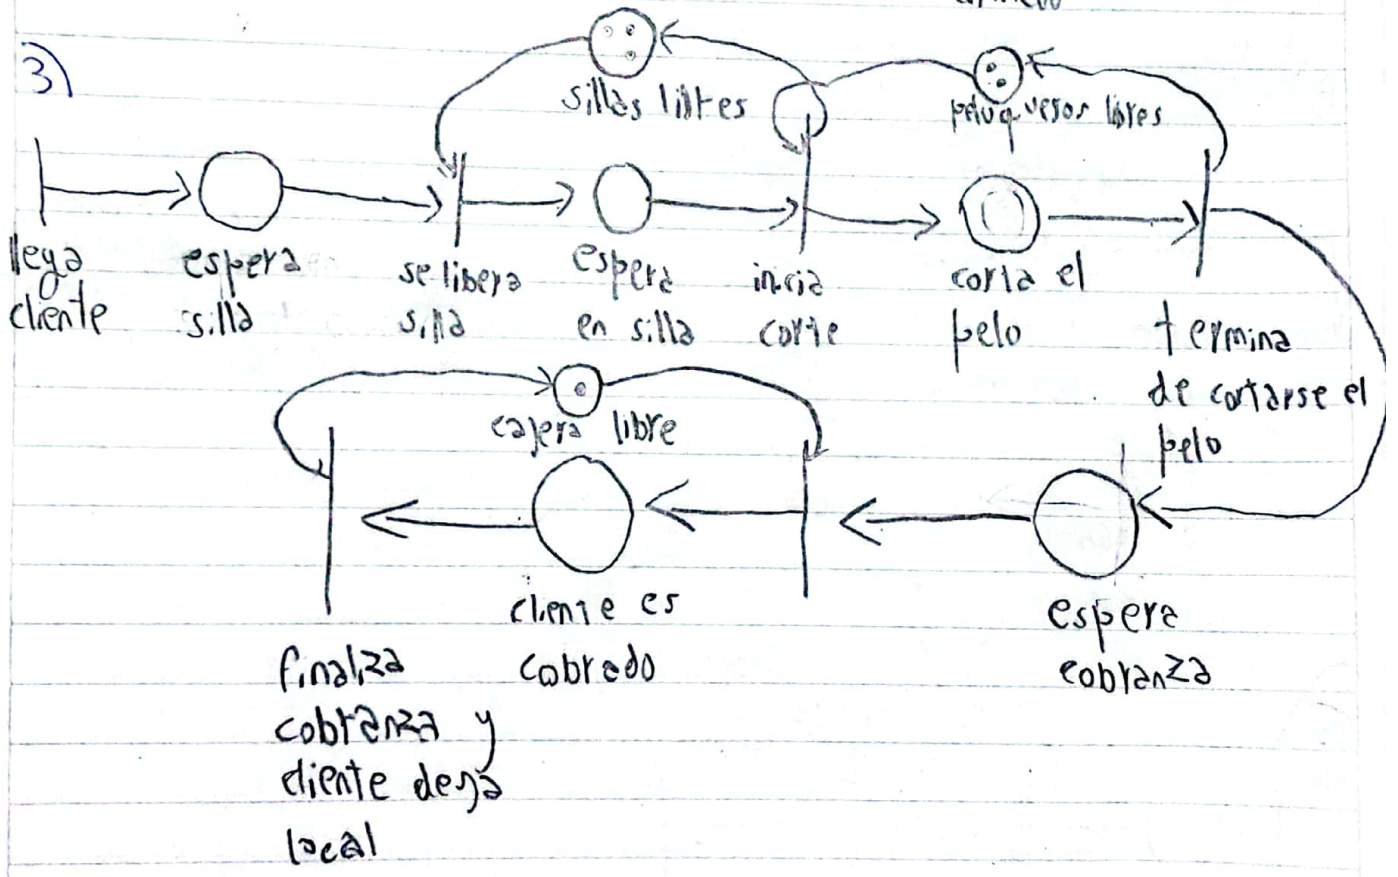 3)
sillas libres
peluqueros libres
llega
cliente
espera
silla
se libera
silla
espera
en silla
inicia
corte
corta el
pelo
termina
de cortarse el
pelo
cajera libre
cliente es
cobrado
espera
cobranza
finaliza
cobranza y
cliente deja
local